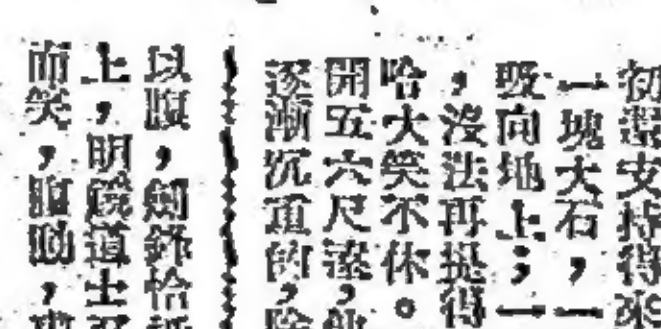 初還支持得來
一塊大石，一
吸向地上；一
，沒法再提得
哈大笑不休。
開五六尺遠，
逐漸沉重的，陰
以腹，劍鋒恰
上，明鏡道士
而笑，腹動，